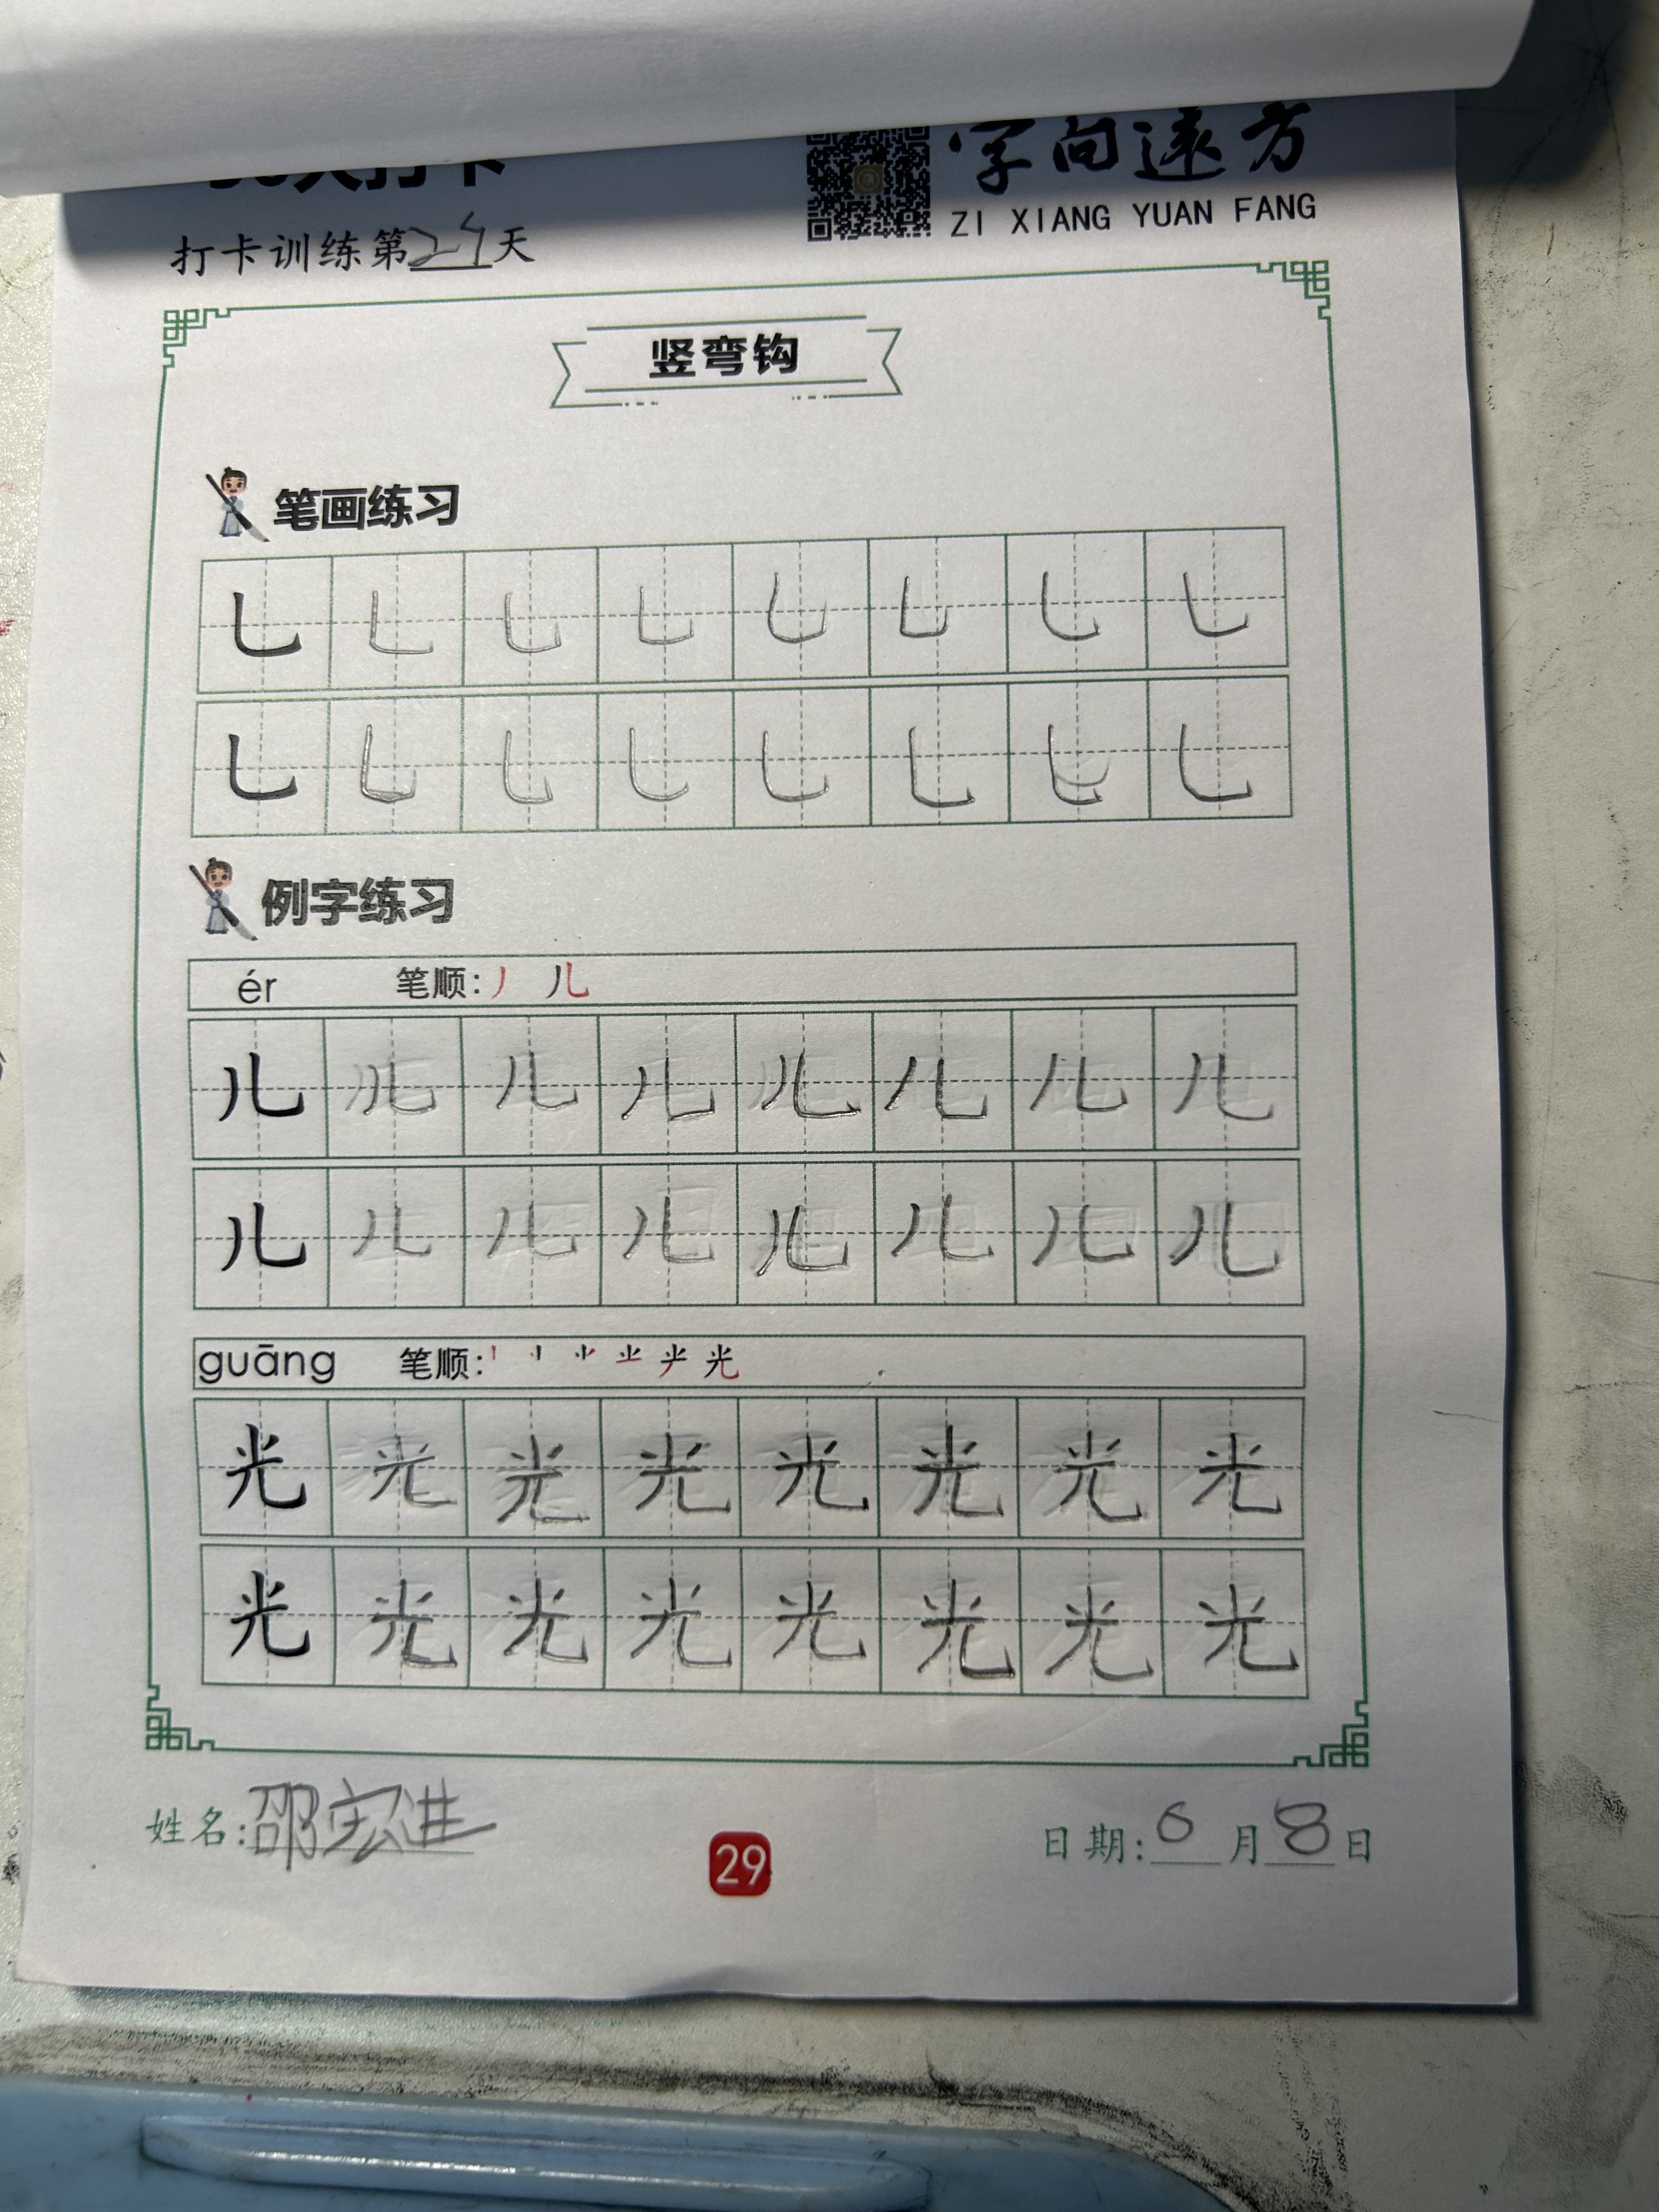 字向远方
ZI XIANG YUAN FANG
打卡训练第29天
竖弯钩
笔画练习
乚 乚 乚 乚 乚 乚 乚 乚
乚 乚 乚 乚 乚 乚 乚 乚
例字练习
ér 笔顺: 丿 儿
儿 儿 儿 儿 儿 儿 儿 儿
儿 儿 儿 儿 儿 儿 儿 儿
guāng 笔顺: 光
光 光 光 光 光 光 光 光
光 光 光 光 光 光 光 光
姓名: 邵宏进
29
日期: 6月8日